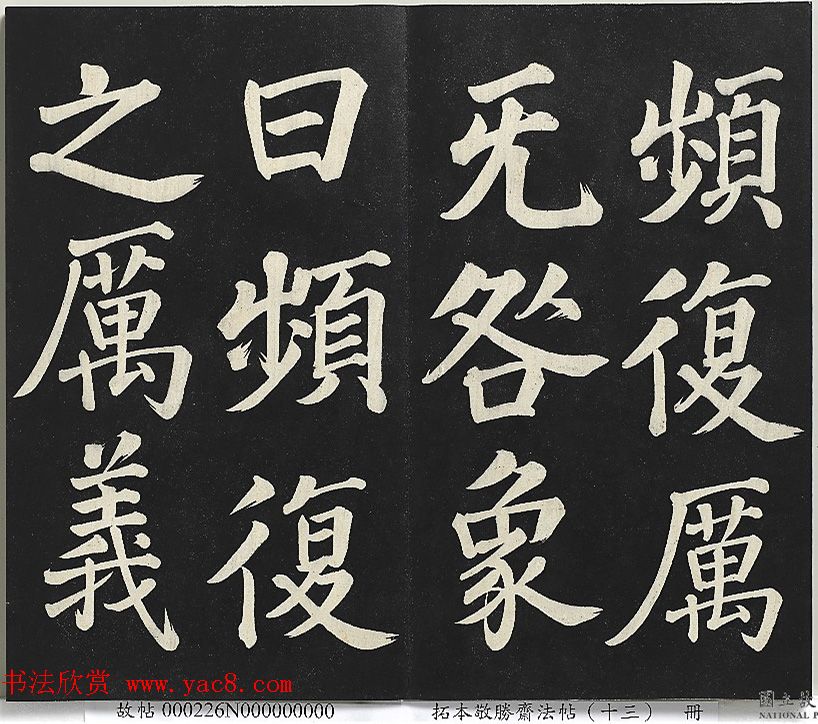 頻復厲
无咎象
曰頻復
之厲義
书法欣赏 www.yac8.com
故帖 000226N000000000
拓本敬勝齋法帖(十三) 冊
國立故
NATIONAL P